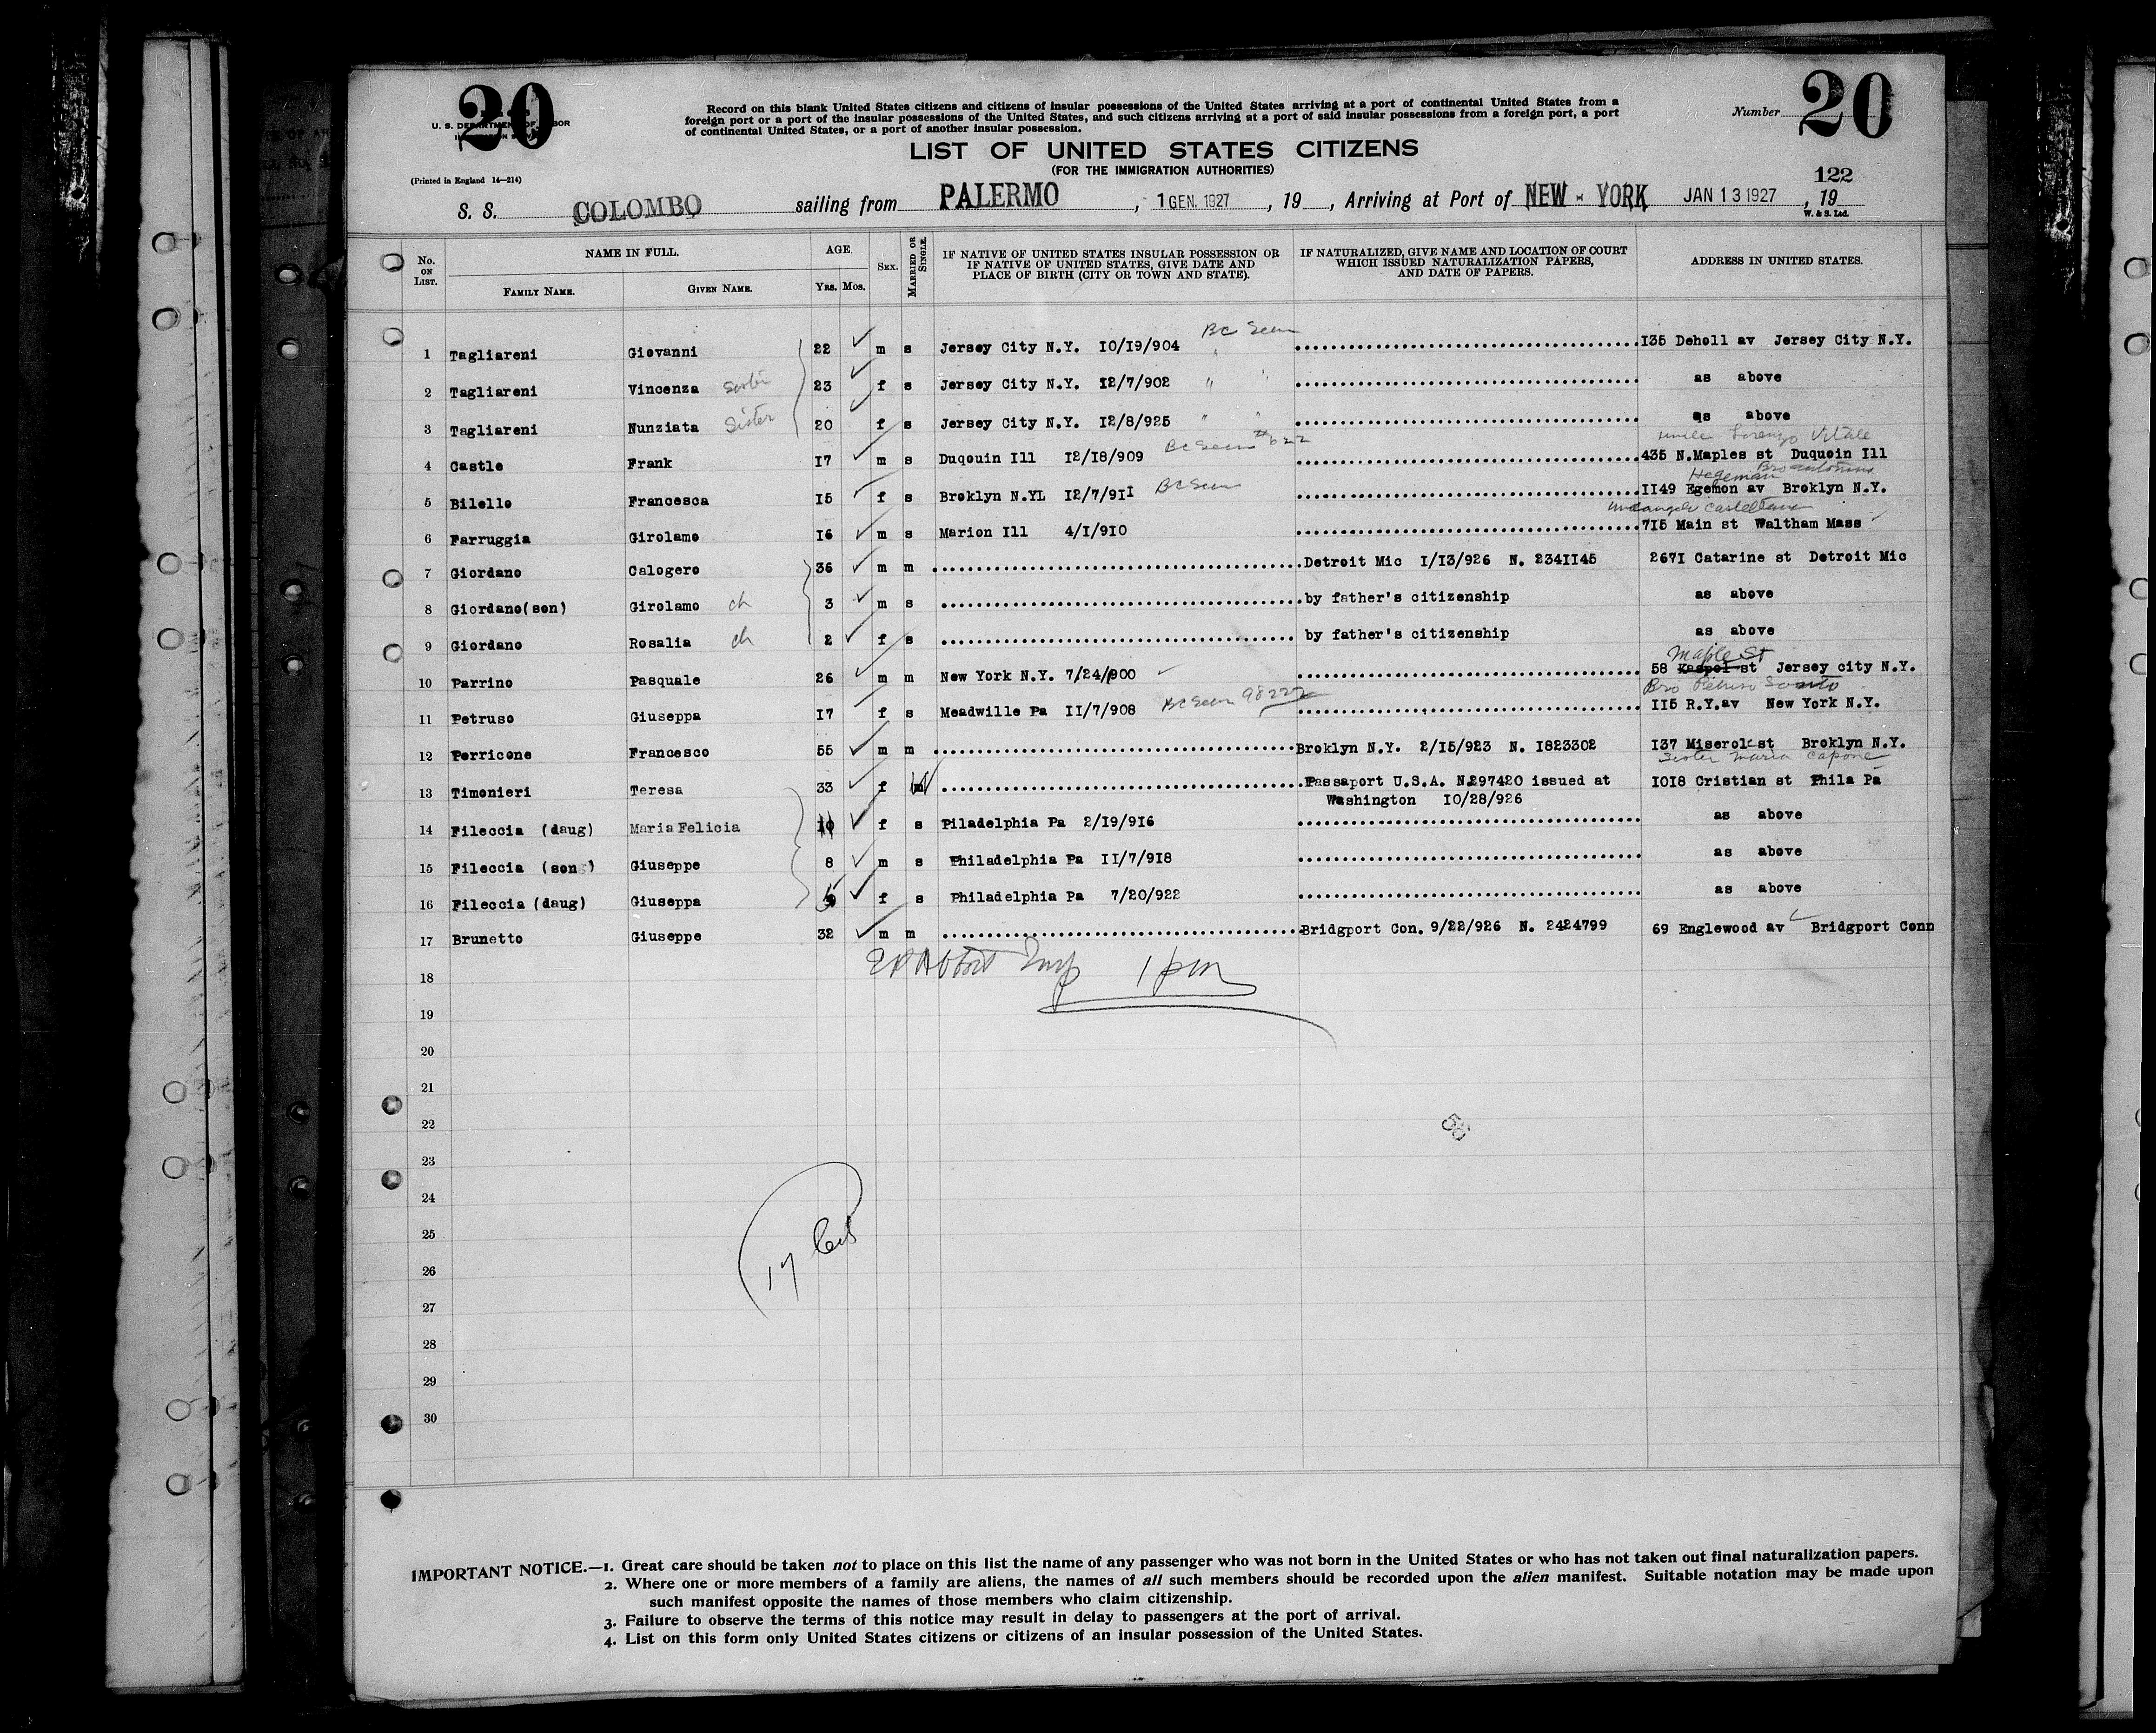 20
U. S. DEPARTMENT OF LABOR
Record on this blank United States citizens and citizens of insular possessions of the United States arriving at a port of continental United States from a
foreign port or a port of the insular possessions of the United States, and such citizens arriving at a port of said insular possessions from a foreign port, a port
of continental United States, or a port of another insular possession.
Number 20
LIST OF UNITED STATES CITIZENS
(FOR THE IMMIGRATION AUTHORITIES)
(Printed in England 14—214)
122
S. S. COLOMBO sailing from PALERMO, 1 GEN. 1927, 19 , Arriving at Port of NEW - YORK JAN 13 1927, 19
W. & S. Ltd.
No. ON LIST. NAME IN FULL. FAMILY NAME. GIVEN NAME. AGE. YRS. MOS. SEX. MARRIED OR SINGLE. IF NATIVE OF UNITED STATES INSULAR POSSESSION OR IF NATIVE OF UNITED STATES, GIVE DATE AND PLACE OF BIRTH (CITY OR TOWN AND STATE). IF NATURALIZED, GIVE NAME AND LOCATION OF COURT WHICH ISSUED NATURALIZATION PAPERS, AND DATE OF PAPERS. ADDRESS IN UNITED STATES.
BC Seen
1 Tagliareni Giovanni 22 m s Jersey City N.Y. I0/I9/904 I35 Deholl av Jersey City N.Y.
2 Tagliareni Vincenza Sister 23 f s Jersey City N.Y. I2/7/902 " " as above
3 Tagliareni Nunziata Sister 20 f s Jersey City N.Y. I2/8/925 " " as above
BC Seen #622 uncle Lorenzo Vitale
4 Castle Frank I7 m s Duqouin Ill I2/I8/909 435 N.Maples st Duquoin Ill
Hegeman Bro
5 Bilello Francesca I5 f s Broklyn N.YL I2/7/9II BC Seen II49 Egemon av Broklyn N.Y.
6 Farruggia Girolamo I6 m s Marion Ill 4/I/9I0 7I5 Main st Waltham Mass
7 Giordano Calogero 36 m m Detroit Mic I/I3/926 N. 234II45 267I Catarine st Detroit Mic
8 Giordano(son) Girolamo ch 3 m s by father's citizenship as above
9 Giordano Rosalia ch 2 f s by father's citizenship as above
Maple St
10 Parrino Pasquale 26 m m New York N.Y. 7/24/900 58 Kaspel st Jersey city N.Y.
BC Seen 98222 Bro
11 Petruso Giuseppa I7 f s Meadwille Pa II/7/908 II5 R.Y.av New York N.Y.
12 Perricone Francesco 55 m m Broklyn N.Y. 2/I5/923 N. I823302 I37 Miserol st Broklyn N.Y.
Sister Maria Capone
13 Timonieri Teresa 33 f Passaport U.S.A. N.297420 issued at I0I8 Cristian st Phila Pa
Washington I0/28/926
14 Fileccia (daug) Maria Felicia f s Piladelphia Pa 2/I9/9I6 as above
15 Fileccia (son) Giuseppe 8 m s Philadelphia Pa II/7/9I8 as above
16 Fileccia (daug) Giuseppa f s Philadelphia Pa 7/20/922 as above
17 Brunetto Giuseppe 32 m m Bridgport Con. 9/22/926 N. 2424799 69 Englewood av Bridgport Conn
18 1 pm
19
20
21
22
23
24
25
26
27
28
29
30
17
IMPORTANT NOTICE.—1. Great care should be taken not to place on this list the name of any passenger who was not born in the United States or who has not taken out final naturalization papers.
2. Where one or more members of a family are aliens, the names of all such members should be recorded upon the alien manifest. Suitable notation may be made upon
such manifest opposite the names of those members who claim citizenship.
3. Failure to observe the terms of this notice may result in delay to passengers at the port of arrival.
4. List on this form only United States citizens or citizens of an insular possession of the United States.